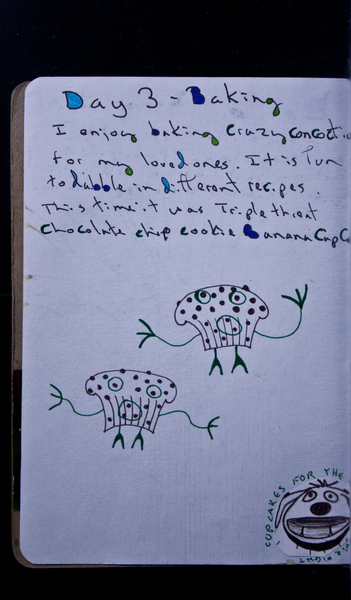 Day 3 - Baking
I enjoy baking crazy concocti
for my loved ones. It is fun
to dabble in different recipes.
This time it was Triple threat
chocolate chip cookie Banana CupC
CUPCAKES FOR THE